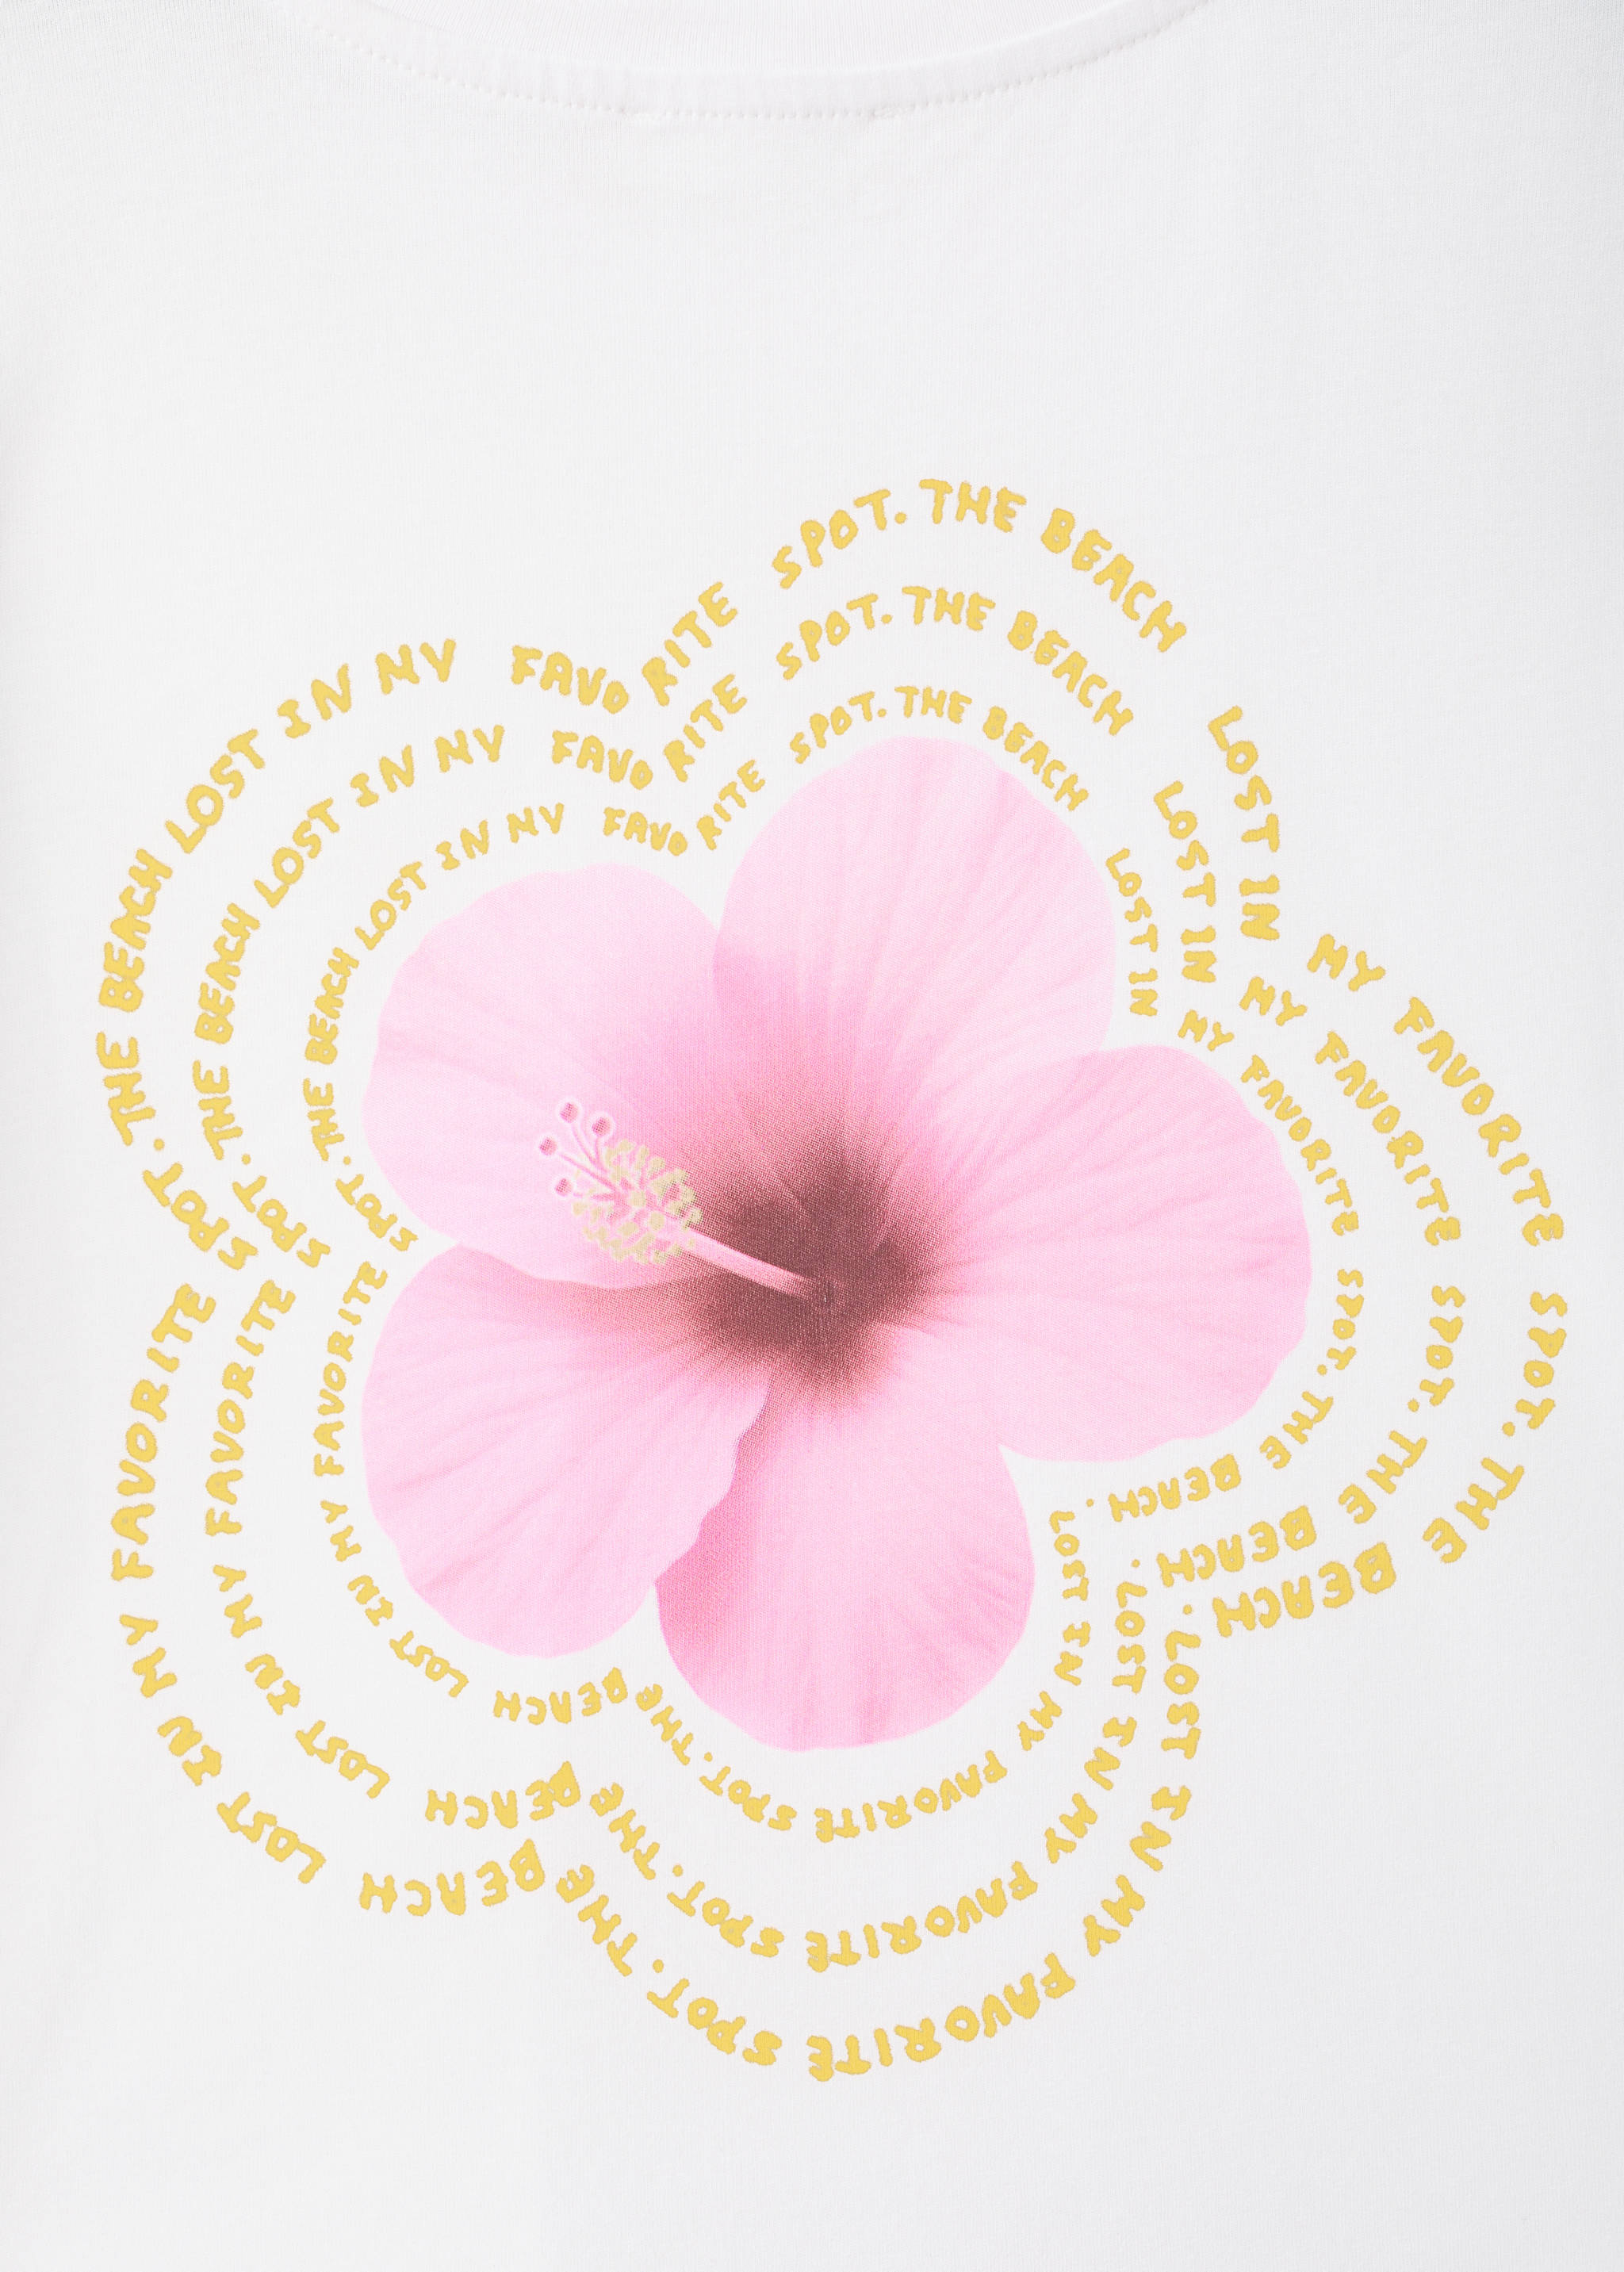 LOST IN MY FAVORITE SPOT. THE BEACH LOST IN MY FAVORITE SPOT. THE BEACH. LOST IN MY FAVORITE SPOT. THE BEACH LOST IN MY FAVORITE SPOT. THE BEACH
LOST IN MY FAVORITE SPOT. THE BEACH LOST IN MY FAVORITE SPOT. THE BEACH. LOST IN MY FAVORITE SPOT. THE BEACH LOST IN MY FAVORITE SPOT. THE BEACH
LOST IN MY FAVORITE SPOT. THE BEACH LOST IN MY FAVORITE SPOT. THE BEACH. LOST IN MY FAVORITE SPOT. THE BEACH LOST IN MY FAVORITE SPOT. THE BEACH